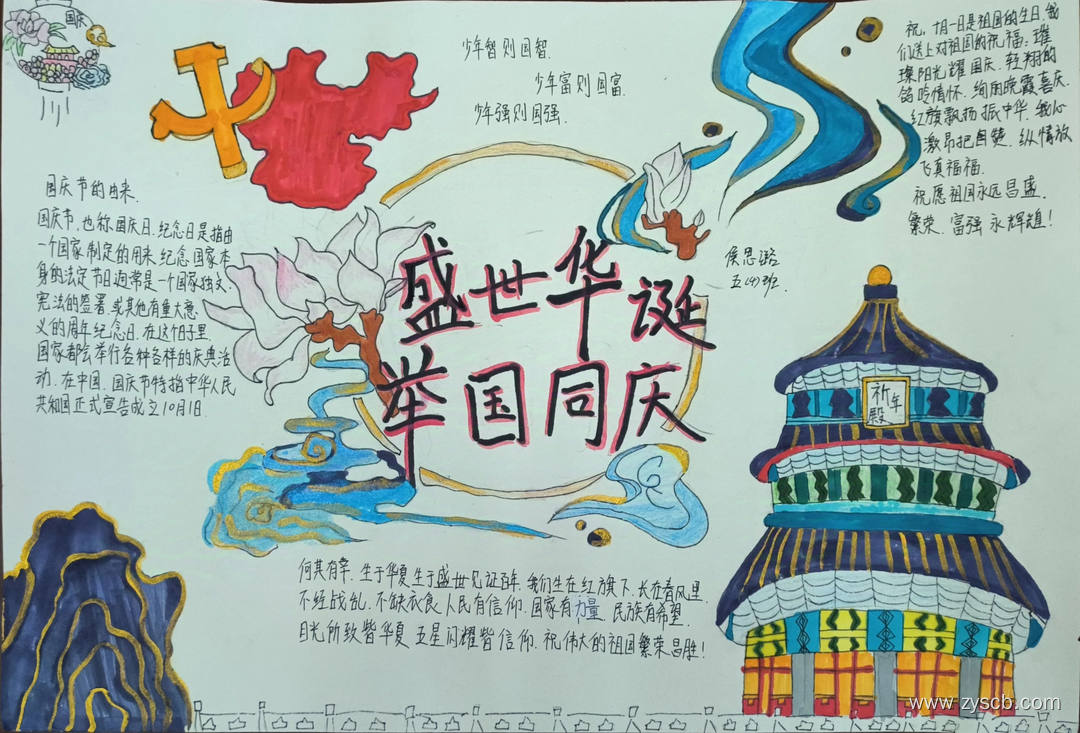 国庆
少年智则国智.
少年富则国富.
少年强则国强.
祝,十月一日是祖国的生日.我
们送上对祖国的祝福:璀
璨阳光耀国庆.轻翔的
鸽吃情怀.绚丽晚霞喜庆.
红旗飘扬振中华.我心
激昂把国赞.纵情放
飞真福福.
祝愿祖国永远昌盛.
繁荣.富强永辉雄!
侯思潞
五(4)班.
国庆节的由来.
国庆节.也称国庆日.纪念日是指由
一个国家制定的用来纪念国家本
身的法定节日通常是一个国家独立.
宪法的签署.或其他有重大意
义的周年纪念日.在这个日子里.
国家都会举行各种各样的庆典活
动.在中国.国庆节特指中华人民
共和国正式宣告成立10月1日.
盛世华诞
举国同庆
祈年
殿
何其有幸.生于华夏生于盛世见证百年.我们生在红旗下.长在春风里.
不经战乱.不缺衣食.人民有信仰.国家有力量.民族有希望.
目光所致皆华夏五星闪耀皆信仰.祝伟大的祖国繁荣昌胜!
www.zyscb.com